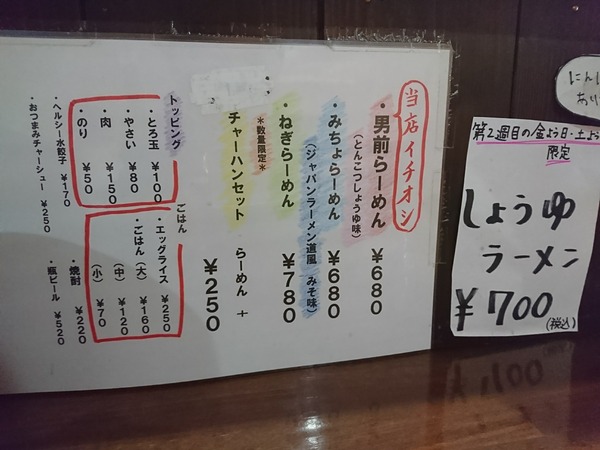 当店イチオシ
・男前らーめん ¥680
(とんこつしょうゆ味)
・みちょらーめん ¥680
(ジャパンラーメン道風 みそ味)
・ねぎらーめん ¥780
*数量限定*
チャーハンセット らーめん + ¥250
トッピング
・とろ玉 ¥100
・やさい ¥80
・肉 ¥150
・のり ¥50
ごはん
・エッグライス ¥250
・ごはん(大) ¥160
(中) ¥120
(小) ¥70
・ヘルシー水餃子 ¥170
・おつまみチャーシュー ¥250
・焼酎 ¥220
・瓶ビール ¥520
第2週目の金よう日・土よう
限定
しょうゆ
ラーメン
¥700
(税込)
にんに
あり